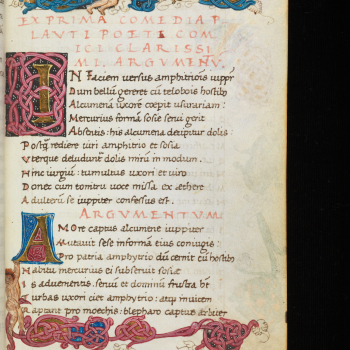 EX PRIMA COMEDIA P
LAVTI POETE COM
ICI CLARISSI
MI. ARGVMENTV.
IN Faciem uersus amphitrionis iuppr
Dum bellū gereret cū telobois hostib
Alcumenā uxorē coepit usurariam:
Mercurius formā sosiæ serui gerit
Absentis: his alcumena decipitur dolis:
Postq̄ rediere ueri amphitrio et sosia
Vterque deludunt dolis mirū in modum.
Hinc iurgiū: tumultus uxori et uiro
Donec cum tonitru uoce missa ex æthere
Adulterū se iuppiter confessus est.
ARGVMENTVM
AMore captus alcumenæ iuppiter
Mutauit sese in formā eius coniugis:
Pro patria amphytrio dū cernit cū hostib
Habitu mercurius ei subseruit sosiæ
Is aduenientis seruū et dominū frustra ht
Turbas uxori ciet amphytrio: atq; inuicem
Raptant pro moechis: blepharo captus arbiter